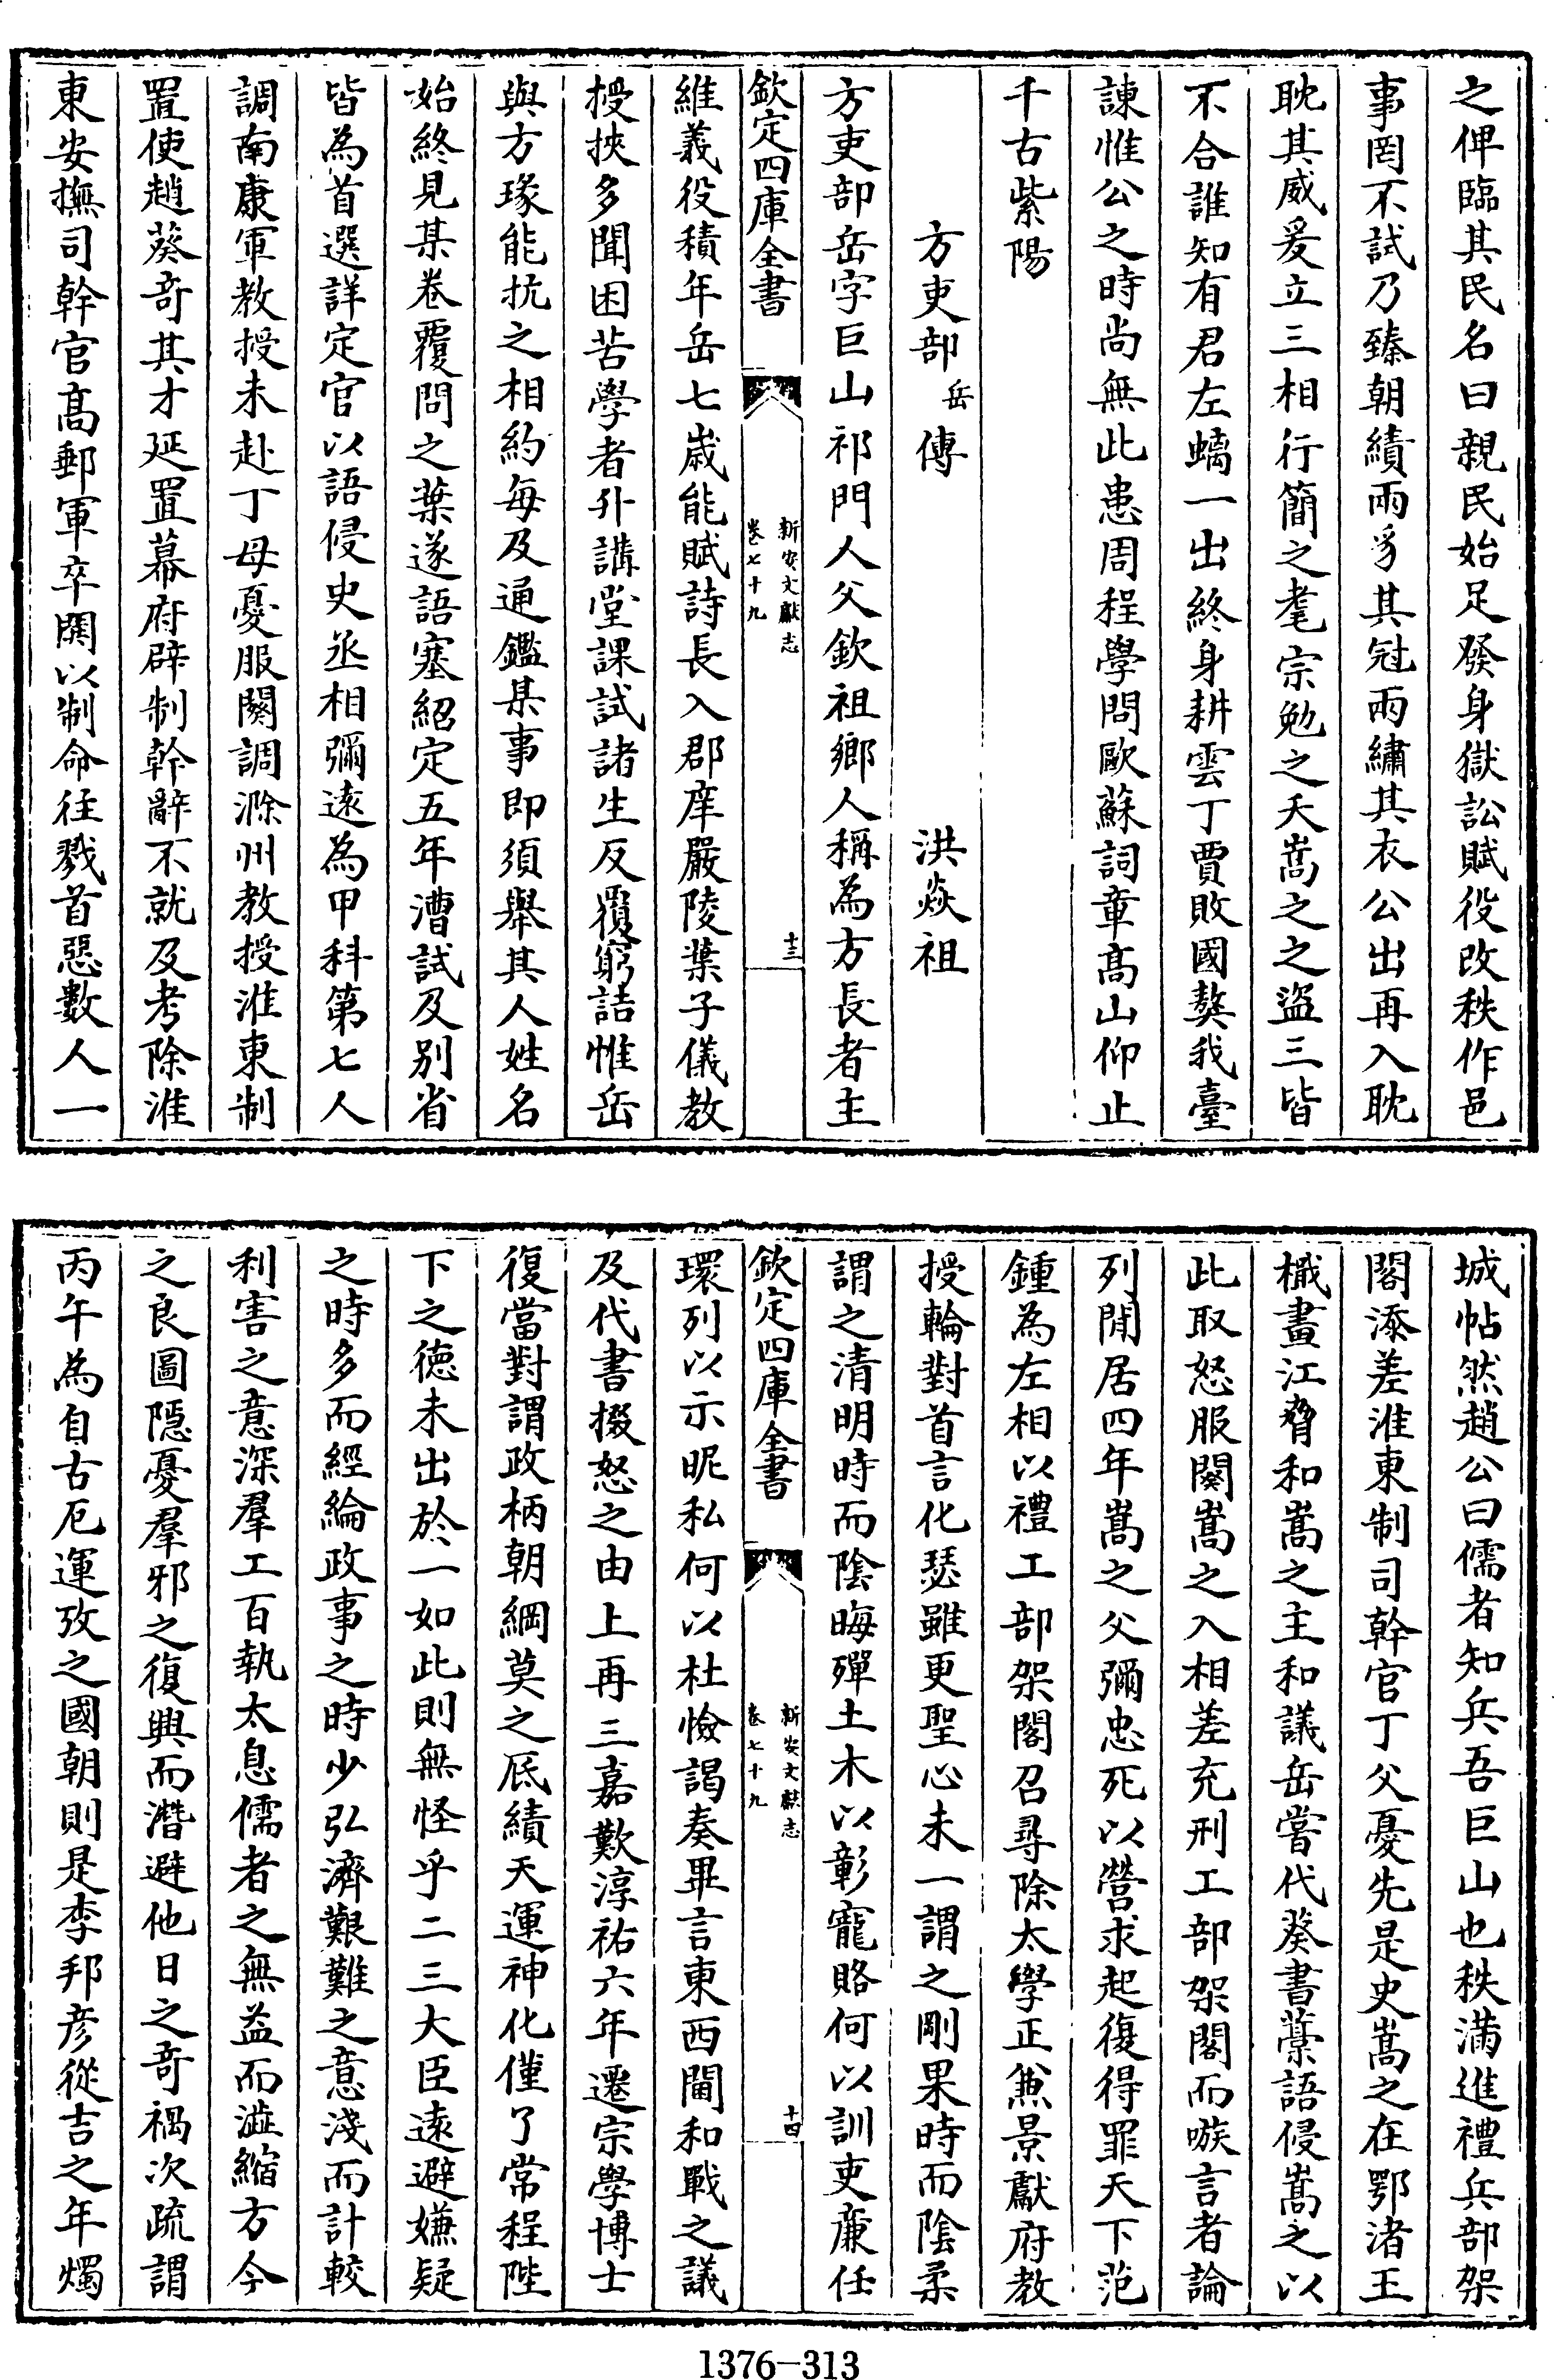 之俾臨其民名曰親民始足發身獄訟賦役改秩作邑
事罔不試乃臻朝績兩豸其冠兩繡其衣公出再入耽
耽其威爰立三相行簡之耄宗勉之夭嵩之之盜三皆
不合誰知有君左螭一出終身耕雲丁賈敗國獘我臺
諫惟公之時尚無此患周程學問歐蘇詞章髙山仰止
千古紫陽
方吏部岳傳 洪焱祖
方吏部岳字巨山祁門人父欽祖鄉人稱為方長者主
欽定四庫全書
新安文獻志
卷七十九
十三
維義役積年岳七歲能賦詩長入郡庠嚴陵葉子儀教
授挾多聞困苦學者升講堂課試諸生反覆窮詰惟岳
與方瑑能抗之相約每及通鑑某事即須舉其人姓名
始終見某卷覆問之葉遂語塞紹定五年漕試及别省
皆為首選詳定官以語侵史丞相彌逺為甲科第七人
調南康軍教授未赴丁母憂服闋調滁州教授淮東制
置使趙葵竒其才延置幕府辟制幹辭不就及考除淮
東安撫司幹官髙郵軍卒閧以制命往戮首惡數人一
城帖然趙公曰儒者知兵吾巨山也秩滿進禮兵部架
閣添差淮東制司幹官丁父憂先是史嵩之在鄂渚王
檝畫江脅和嵩之主和議岳嘗代葵書藁語侵嵩之以
此取怒服闋嵩之入相差充刑工部架閣而嗾言者論
列閒居四年嵩之父彌忠死以營求起復得罪天下范
鍾為左相以禮工部架閣召尋除太學正兼景獻府教
授輪對首言化瑟雖更聖心未一謂之剛果時而陰柔
謂之清明時而陰晦殫土木以彰寵賂何以訓吏亷任
欽定四庫全書
新安文獻志
卷七十九
十四
環列以示昵私何以杜憸謁奏畢言東西閫和戰之議
及代書掇怒之由上再三嘉歎淳祐六年遷宗學博士
復當對謂政柄朝綱莫之底績天運神化僅了常程陛
下之徳未出於一如此則無怪乎二三大臣逺避嫌疑
之時多而經綸政事之時少弘濟艱難之意淺而計較
利害之意深羣工百執太息儒者之無益而澁縮方今
之良圖隠憂羣邪之復興而濳避他日之竒禍次疏謂
丙午為自古厄運攷之國朝則是李邦彦從吉之年燭
1376-313